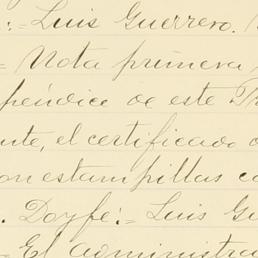 := Luis Guerrero.
= Nota primera
péndice de este
nte, el certificado
on estampillas
. Doyfé:= Luis Gu
= El administra